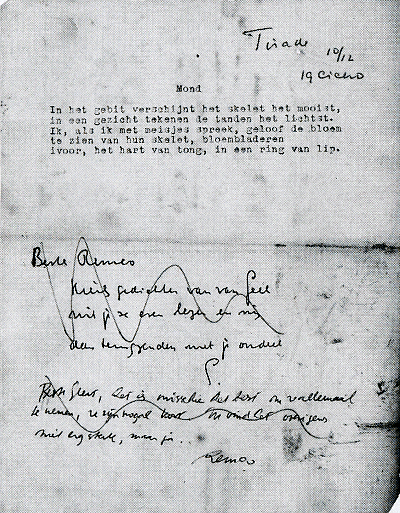 Tirade 10/12
19 Cicero
Mond
In het gebit verschijnt het skelet het mooist,
in een gezicht tekenen de tanden het lichtst.
Ik, als ik met meisjes spreek, geloof de bloem
te zien van hun skelet, bloembladeren
ivoor, het hart van tong, in een ring van lip.
Beste Remco
gedichten van van Geel
wil je ze even lezen en mij
dan terugzenden met je oordeel
G
Beste Geert, het is misschien het best om ze allemaal
te nemen, ze zijn nogal kort. Ik vind het overigens
niet erg sterk, maar ja..
Remco